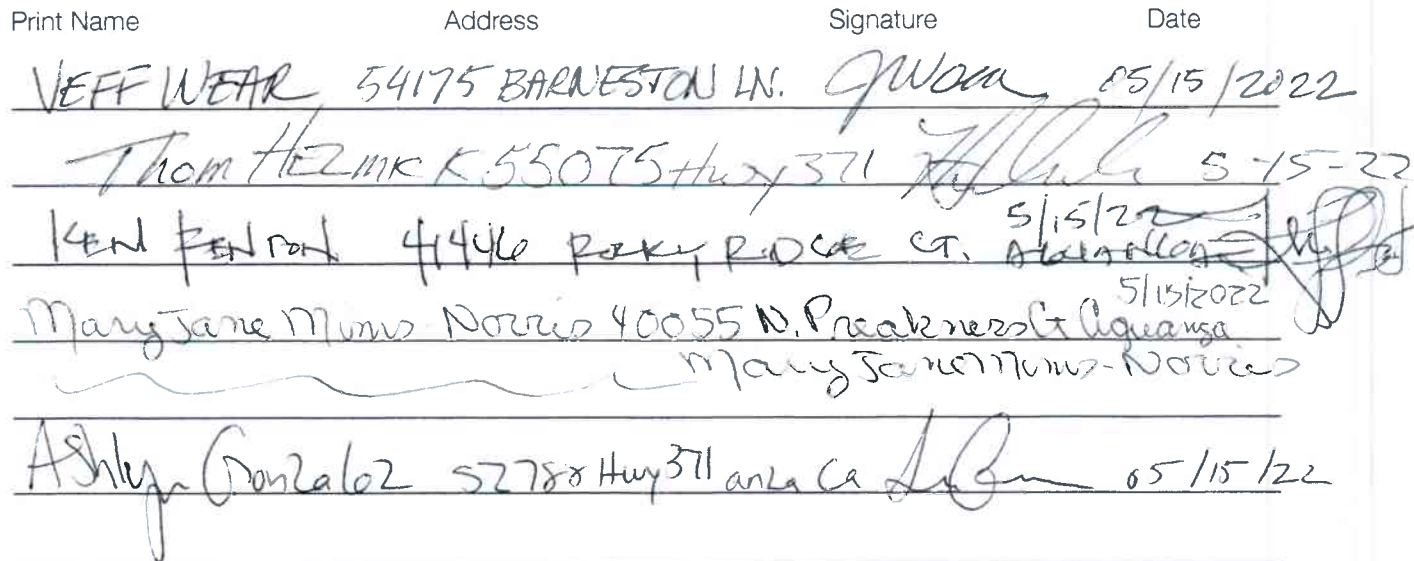 Print Name Address Signature Date
VEFF WEAR 54175 BARNESTON LN. 05/15/2022
Thom 55075 Hwy 371 5-15-22
5/15/22
KEN FENTON 41446 ROCKY RIDGE CT.
5/15/2022
Mary Jane Mims-Norris 40055 N. Preakness Ct Aguanga
Mary Jane Mims-Norris
Ashlyn Gonzalez 52788 Hwy 371 anza Ca 05/15/22